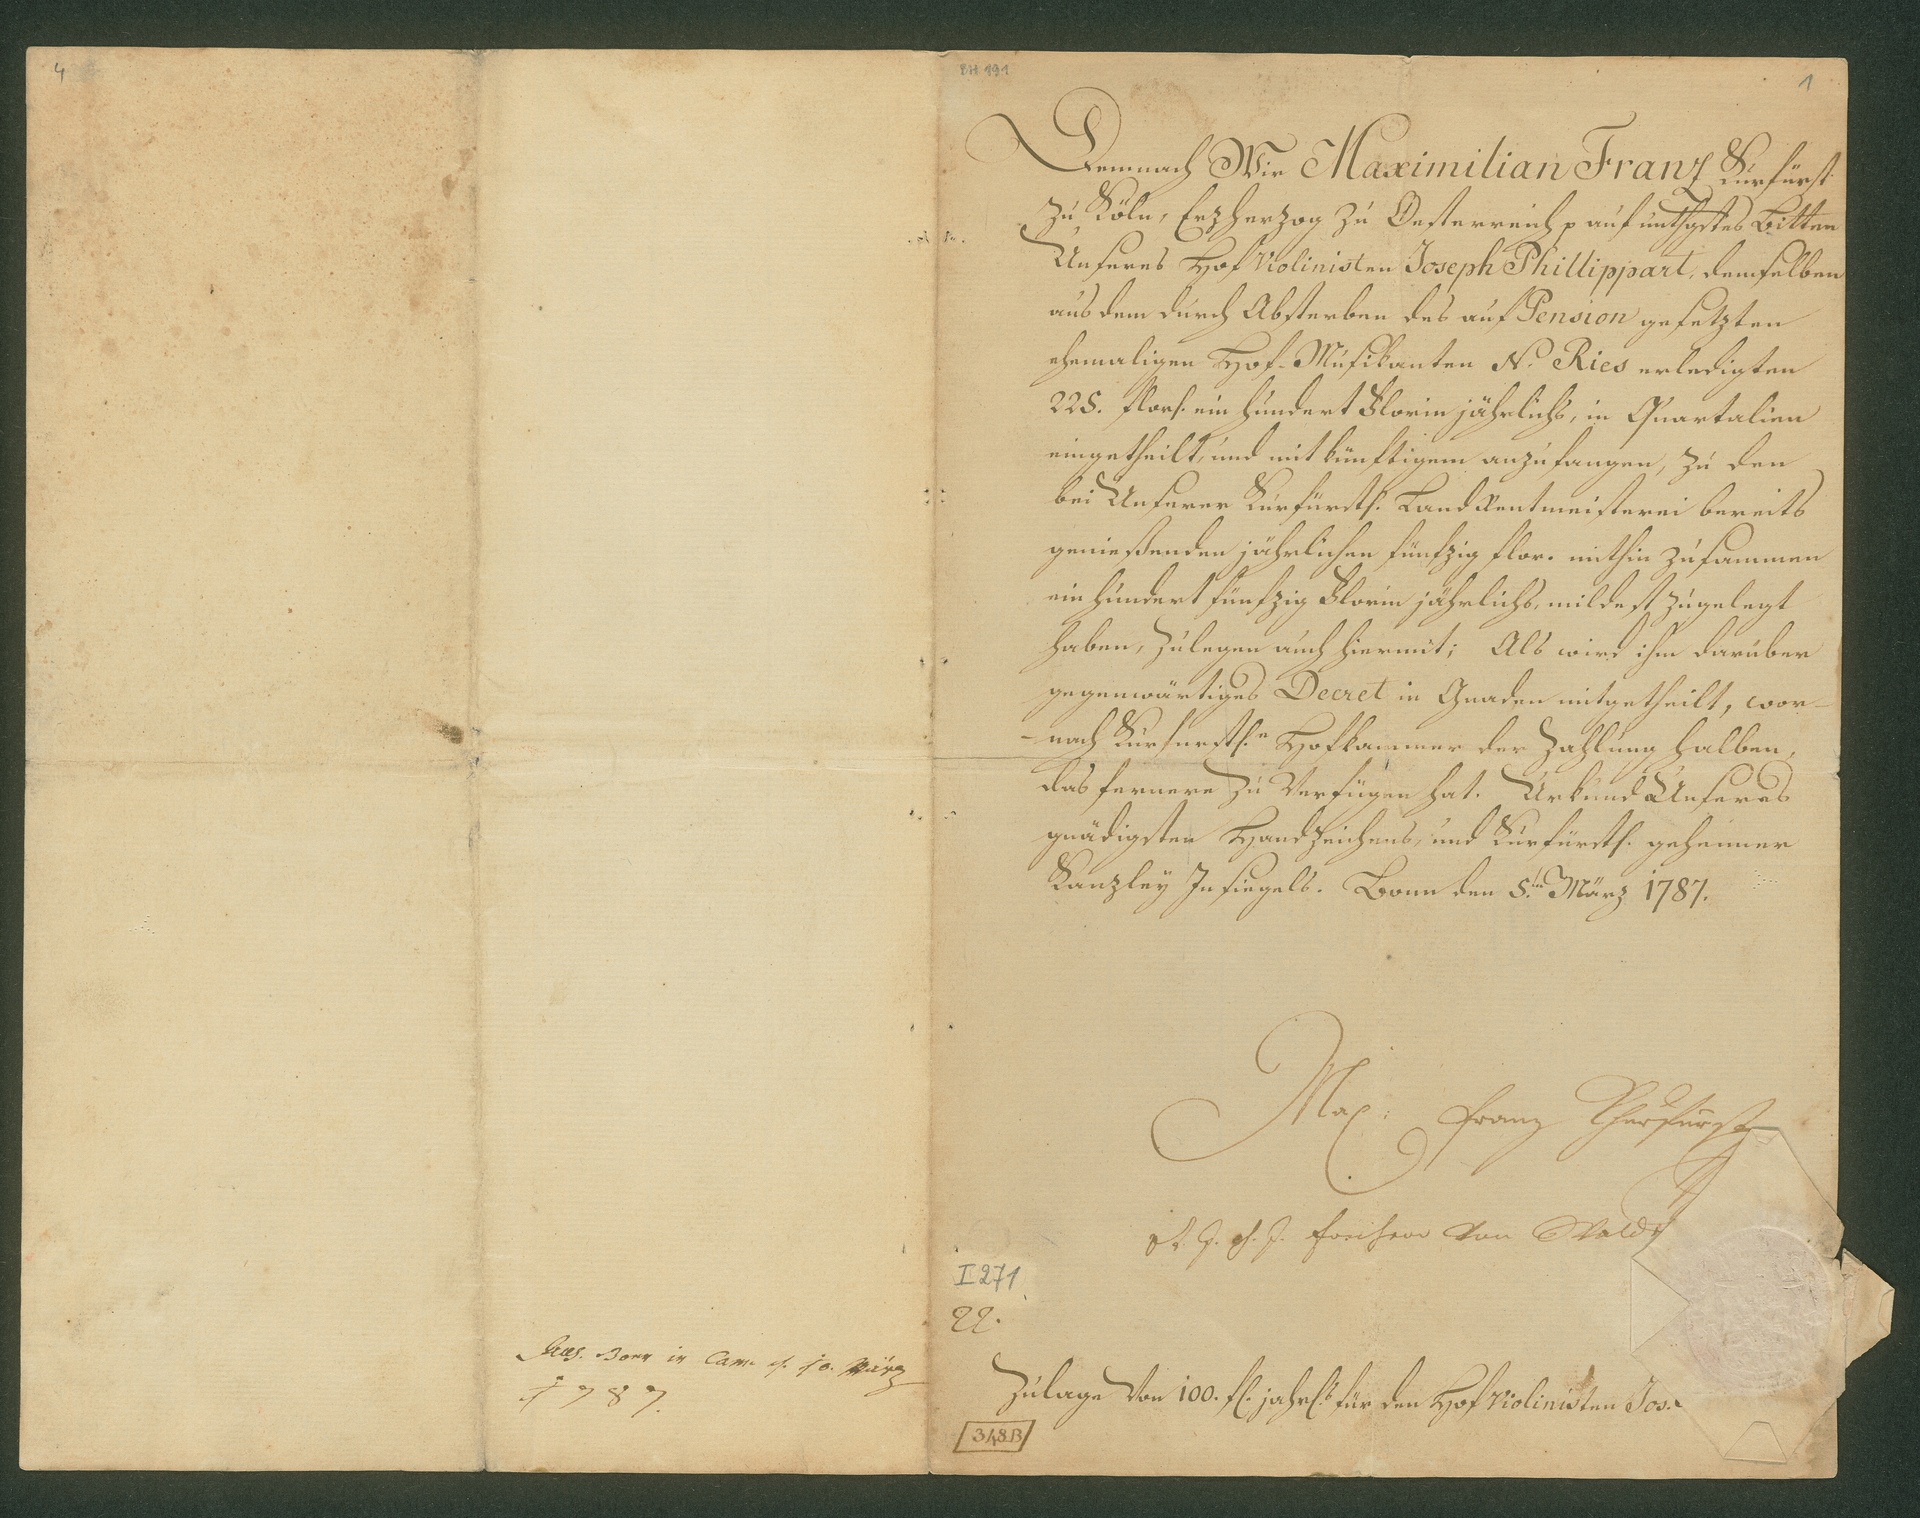 4
BH 191
1
Demnach Wir Maximilian Franz Kurfürst
zu Köln, Erzherzog zu Oesterreich p auf unthgstes Bitten
Unseres Hof Violinisten Joseph Phillippart, demselben
aus dem durch Absterben des auf Pension gesetzten
ehemaligen Hof-Musikanten N. Ries erledigten
225. flor. ein hundert Florin jährlichs, in Quartalien
eingetheilt, und mit künftigem anzufangen, zu den
bei Unserer Kurfürstl. Landrentmeisterei bereits
genießenden jährlichen fünfzig flor. mithin zusammen
ein hundert fünfzig Florin jährlichs, mildest zugelegt
haben, zulegen auch hiermit; Als wird ihm darüber
gegenwärtiges Decret in Gnaden mitgetheilt, wor-
-nach Kurfürstl.n Hofkammer der Zahlung halben,
das fernere zu verfügen hat. Urkund Unseres
gnädigsten Handzeichens, und Kurfürstl. geheimer
Kanzley Insiegels. Bonn den 5.ten März 1787.
Max: Franz Churfürst
Freiherr von Wald
I 271
22.
Zulage von 100. fl. jahrl.s für den Hof Violinisten Jos.
348B
Bonn in Cam. d. 10. März
1787.